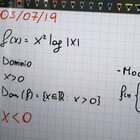 03/07/19
f(x) = x² log |x|
Dominio
x>0
Dom(f) = {x∈ℝ : x>0}
x<0
- Mo
f(x)